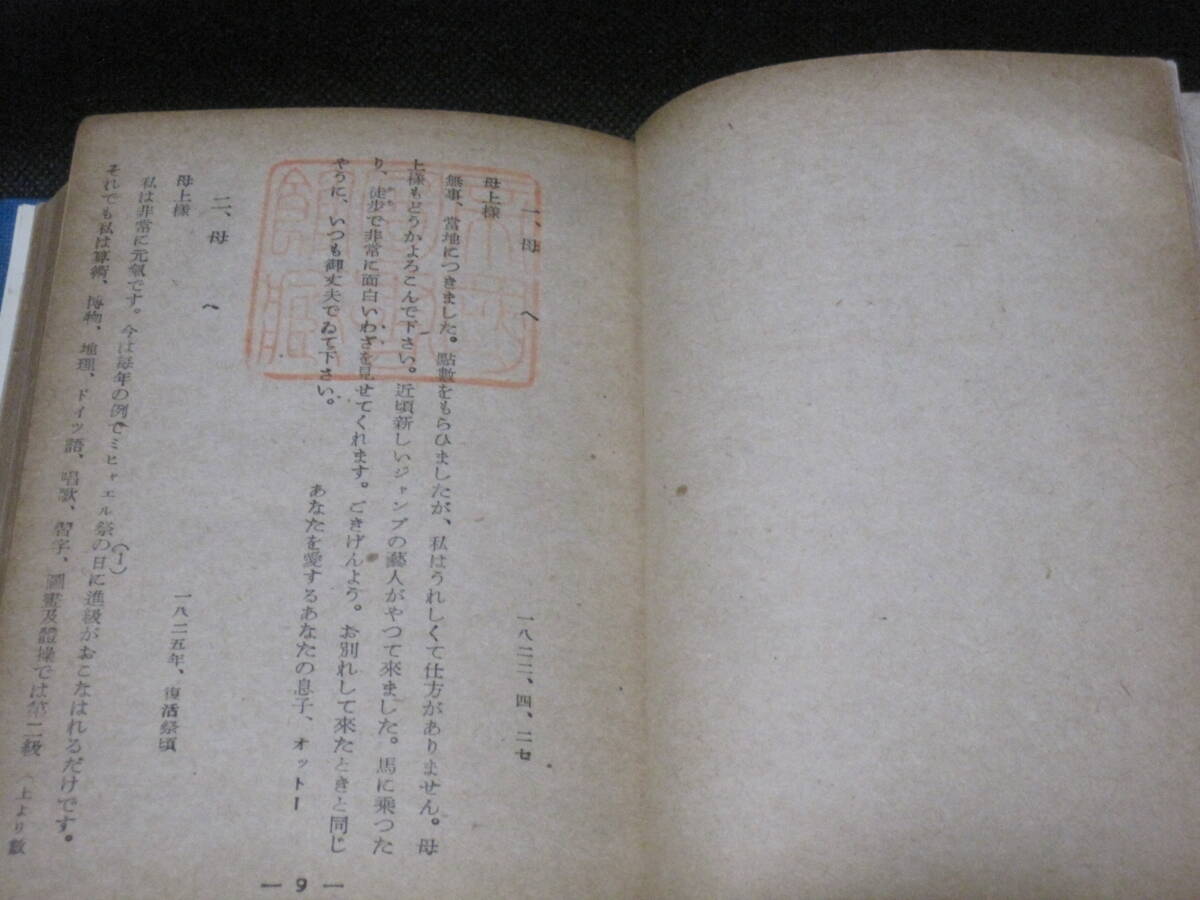 一、母へ
一八二二、四、二七
母上様
無事、當地につきました。點數をもらひましたが、私はうれしくて仕方がありません。母
上様もどうかよろこんで下さい。近頃新しいジャンプの藝人がやつて來ました。馬に乘つた
り、徒步で非常に面白いわざを見せてくれます。ごきげんよう。お別れして來たときと同じ
やうに、いつも御丈夫でゐて下さい。
あなたを愛するあなたの息子、オットー
二、母へ
一八二五年、復活祭頃
母上様
私は非常に元氣です。今は每年の例でミヒャエル祭(1)の日に進級がおこなはれるだけです。
それでも私は算術、博物、地理、ドイツ語、唱歌、習字、圖畫及體操では第二級（上より數
— 9 —